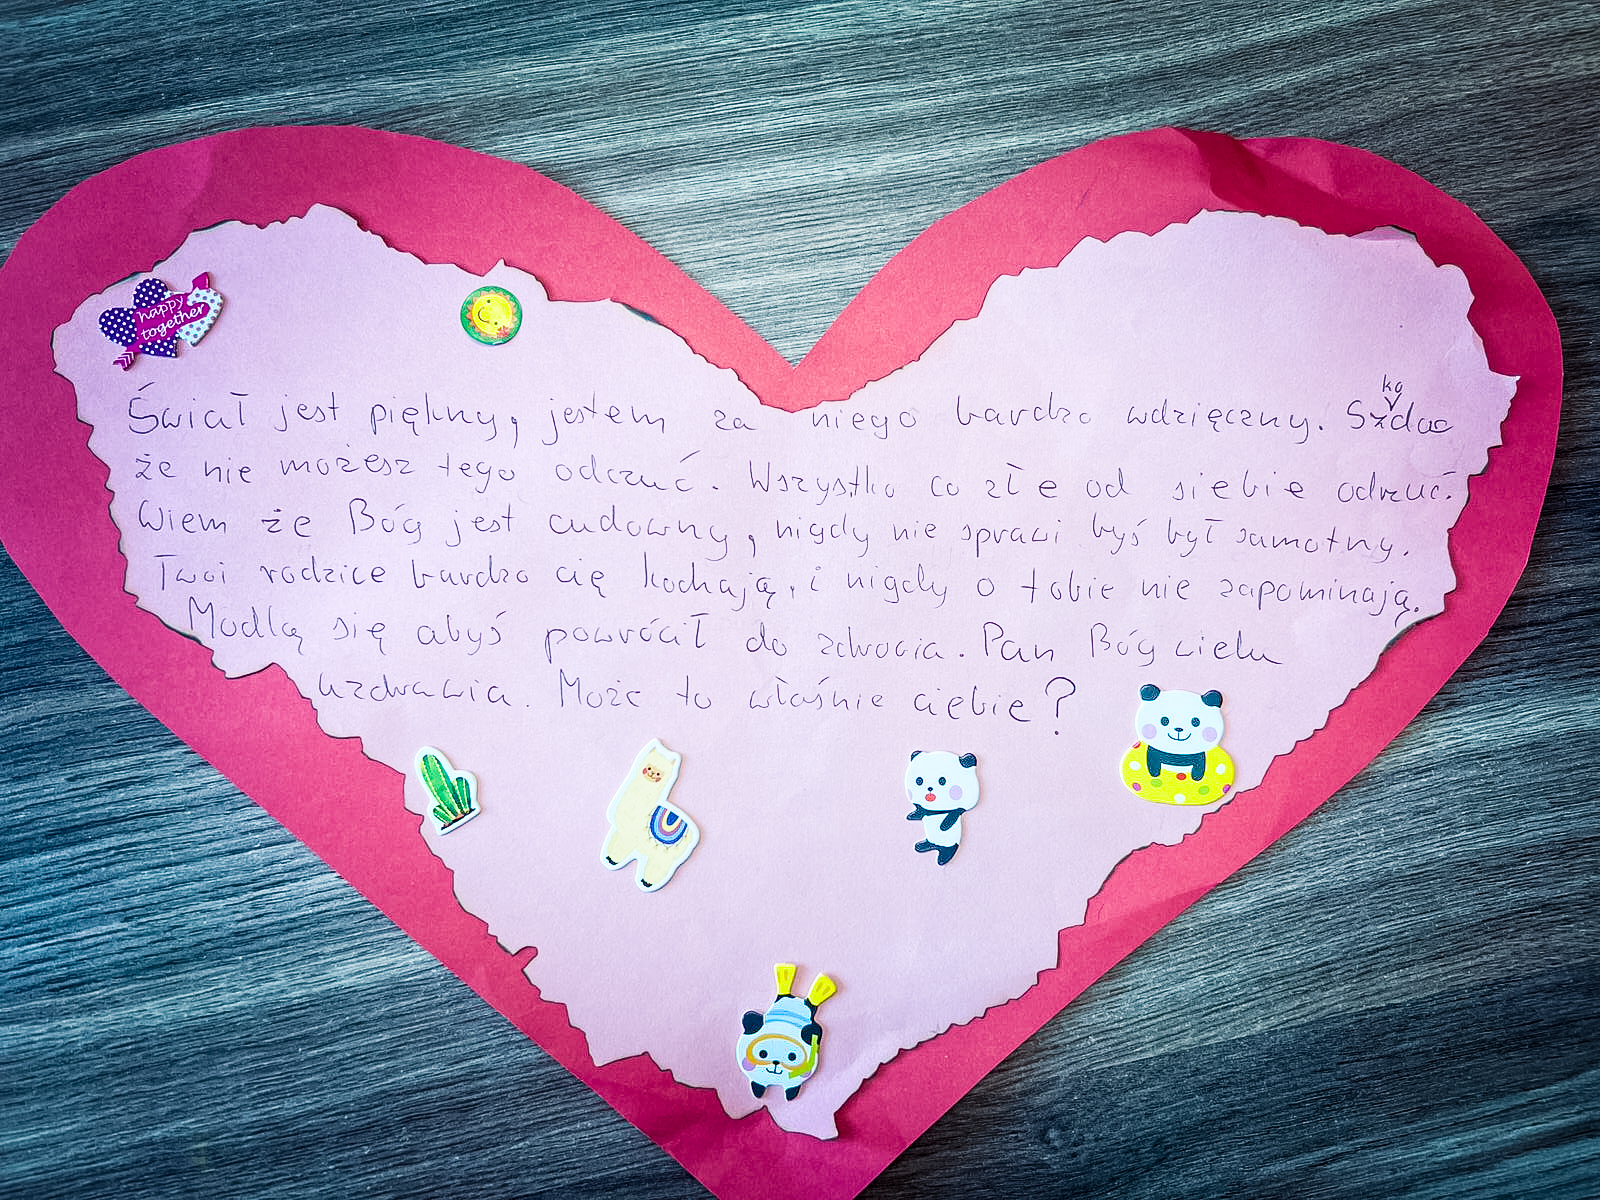 happy
together
Świat jest piękny, jestem za niego bardzo wdzięczny. Szkodaa
że nie możesz tego odczuć. Wszystko co złe od siebie odrzuć.
Wiem że Bóg jest cudowny, nigdy nie sprawi byś był samotny.
Twoi rodzice bardzo cię kochają, i nigdy o tobie nie zapominają.
Modlę się abyś powrócił do zdrowia. Pan Bóg wielu
uzdrawia. Może to właśnie ciebie?